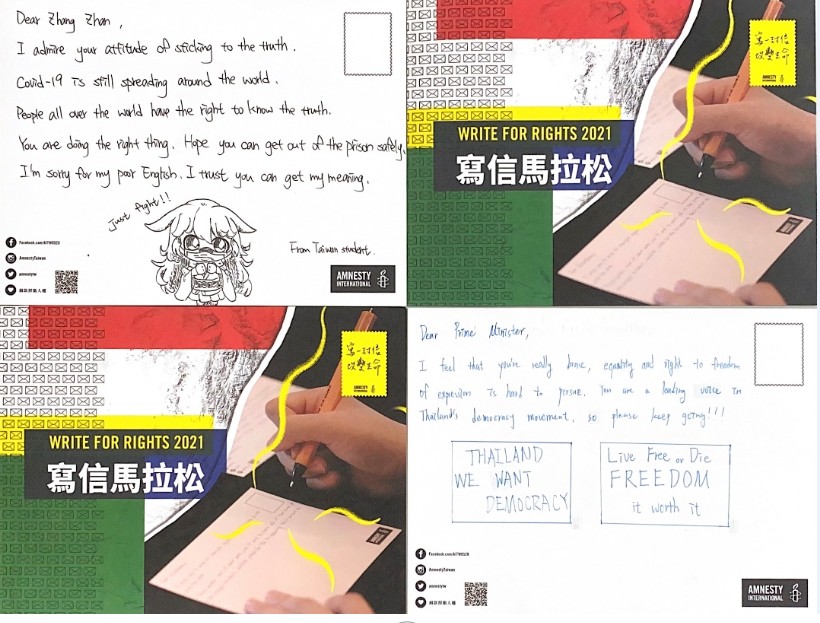 Dear Zhang Zhan,
I admire your attitude of sticking to the truth.
Covid-19 is still spreading around the world.
People all over the world have the right to know the truth.
You are doing the right thing. Hope you can get out of the prison safely.
I'm sorry for my poor English. I trust you can get my meaning.
Just fight!!
From Taiwan student.
AmnestyTaiwan
amnestytw
AMNESTY
INTERNATIONAL
寫一封信
改變生命
AMNESTY
WRITE FOR RIGHTS 2021
寫信馬拉松
寫一封信
改變生命
AMNESTY
WRITE FOR RIGHTS 2021
寫信馬拉松
Dear Prime Minister,
I feel that you're really brave, equality and right to freedom
of expression is hard to pursue. You are a leading voice in
Thailand's democracy movement, so please keep going!!!
THAILAND
WE WANT
DEMOCRACY
Live Free or Die
FREEDOM
it worth it
AmnestyTaiwan
amnestytw
AMNESTY
INTERNATIONAL